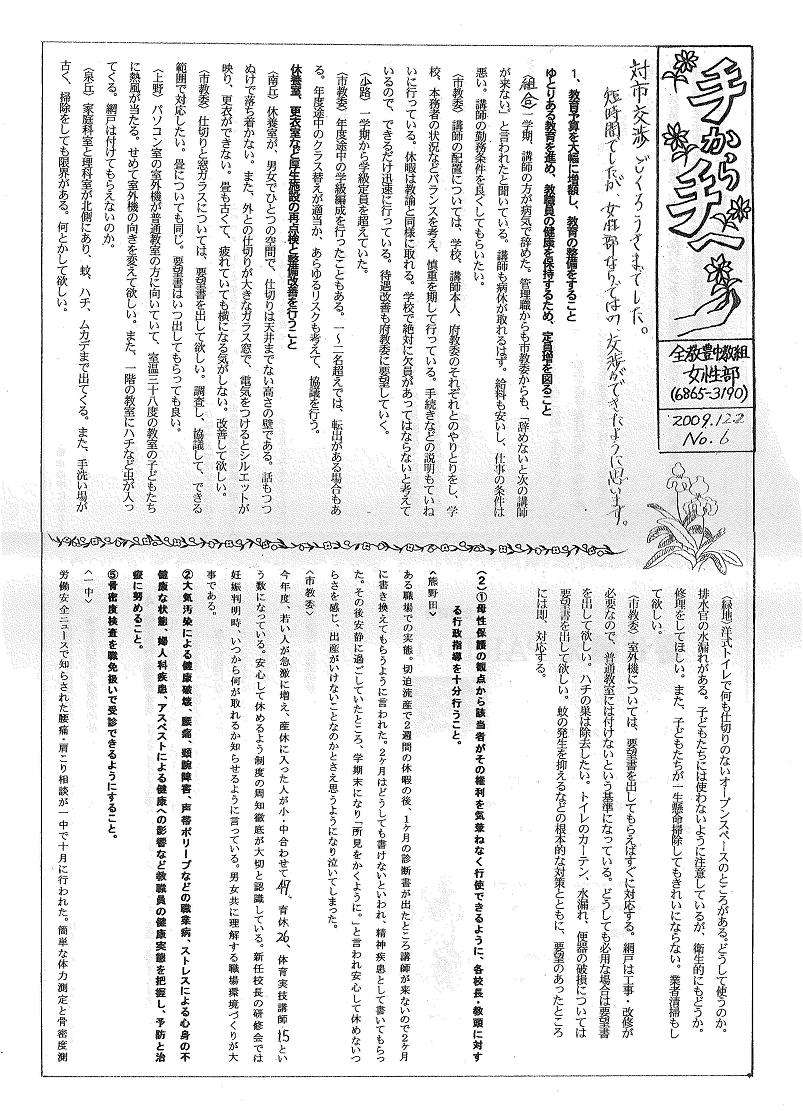 手から手へ
全教豊中教組
女性部
(6865-3190)
2009.12.2
No.6
対市交渉 ごくろうさまでした。
短時間でしたが、女性部ならではの、交渉ができたように思います。
1、教育予算を大幅に増額し、教育の整備をすること
ゆとりある教育を進め、教職員の健康を保持するため、定員増を図ること
〈組合〉一学期、講師の方が病気で辞めた。管理職からも市教委からも、「辞めないと次の講師
が来ない」と言われたと聞いている。講師も病休が取れるはず。給料も安いし、仕事の条件は
悪い。講師の勤務条件を良くしてもらいたい。
〈市教委〉講師の配置については、学校、講師本人、府教委のそれぞれとのやりとりをし、学
校、本務者の状況などバランスを考え、慎重を期して行っている。手続きなどの説明もていね
いに行っている。休暇は教諭と同様に取れる。学校で絶対に欠員があってはならないと考えて
いるので、できるだけ迅速に行っている。待遇改善も府教委に要望していく。
〈小路〉一学期から学級定員を超えていた。
〈市教委〉年度途中の学級編成を行ったこともある。一〜二名超えでは、転出がある場合もあ
る。年度途中のクラス替えが適当か、あらゆるリスクも考えて、協議を行う。
休養室、更衣室など厚生施設の再点検と整備改善を行うこと
〈南丘〉休養室が、男女でひとつの空間で、仕切りは天井までない高さの壁である。話もつつ
ぬけで落ち着かない。また、外との仕切りが大きなガラス窓で、電気をつけるとシルエットが
映り、更衣ができない。畳も古くて、疲れていても横になる気がしない。改善して欲しい。
〈市教委〉仕切りと窓ガラスについては、要望書を出して欲しい。調査し、協議して、できる
範囲で対応したい。畳についても同じ。要望書はいつ出してもらっても良い。
〈上野〉パソコン室の室外機が普通教室の方に向いていて、室温三十八度の教室の子どもたち
に熱風が当たる。せめて室外機の向きを変えて欲しい。また、一階の教室にハチなど虫が入っ
てくる。網戸は付けてもらえないのか。
〈泉丘〉家庭科室と理科室が北側にあり、蚊、ハチ、ムカデまで出てくる。また、手洗い場が
古く、掃除をしても限界がある。何とかして欲しい。
〈緑地〉洋式トイレで何も仕切りのないオープンスペースのところがある。どうして使うのか。
排水官の水漏れがある。子どもたちには使わないように注意しているが、衛生的にもどうか。
修理をしてほしい。また、子どもたちが一生懸命掃除してもきれいにならない。業者清掃もし
て欲しい。
〈市教委〉室外機については、要望書を出してもらえばすぐに対応する。網戸は工事・改修が
必要なので、普通教室には付けないという基準になっている。どうしても必用な場合は要望書
を出して欲しい。ハチの巣は除去したい。トイレのカーテン、水漏れ、便器の破損については
要望書を出して欲しい。蚊の発生を抑えるなどの根本的な対策とともに、要望のあったところ
には即、対応する。
(2)①母性保護の観点から該当者がその権利を気兼ねなく行使できるように、各校長・教頭に対す
る行政指導を十分行うこと。
〈熊野田〉
ある職場での実態。切迫流産で2週間の休暇の後、1ヶ月の診断書が出たところ講師が来ないので2ヶ月
に書き換えてもらうように言われた。2ヶ月はどうしても書けないといわれ、精神疾患として書いてもらっ
た。その後安静に過ごしていたところ、学期末になり「所見をかくように。」と言われ安心して休めないつ
らさを感じ、出産がいけないことなのかとさえ思うようになり泣いてしまった。
〈市教委〉
今年度、若い人が急激に増え、産休に入った人が小・中合わせて49、育休26、体育実技講師15とい
う数になっている。安心して休めるよう制度の周知徹底が大切と認識している。新任校長の研修会では
妊娠判明時、いつから何が取れるか知らせるように言っている。男女共に理解する職場環境づくりが大
事である。
②大気汚染による健康破壊、腰痛、頸腕障害、声帯ポリープなどの職業病、ストレスによる心身の不
健康な状態、婦人科疾患、アスベストによる健康への影響など教職員の健康実態を把握し、予防と治
療に努めること。
⑤骨密度検査を職免扱いで受診できるようにすること。
〈一中〉
労働安全ニュースで知らされた腰痛・肩こり相談が一中で十月に行われた。簡単な体力測定と骨密度測